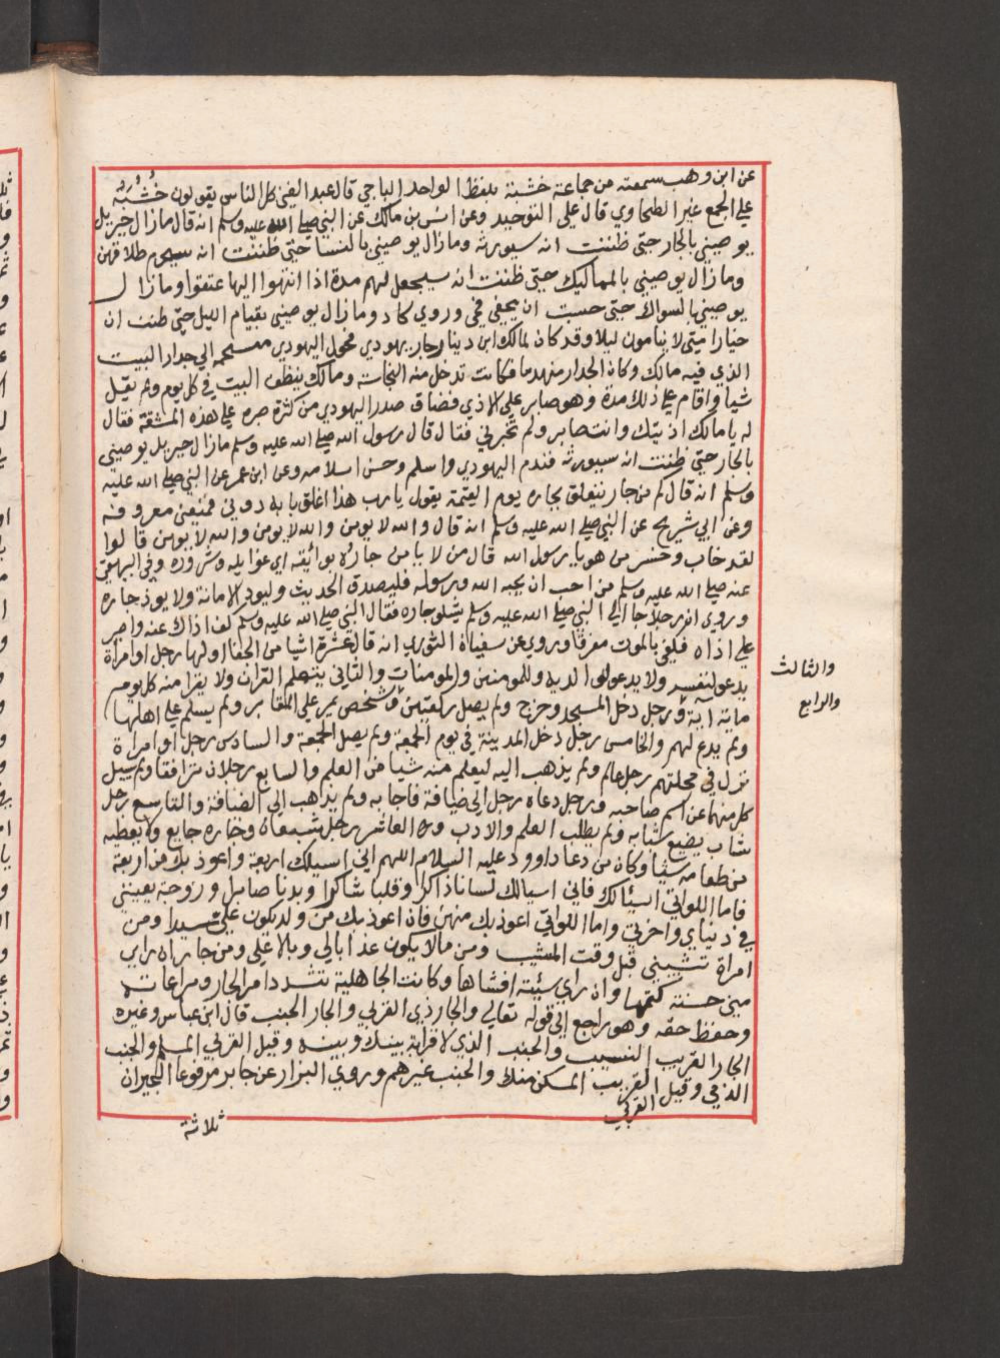 عن ابن وهب سمعته من جماعة خشبة بلفظ الواحد الباجي قال عبد الغني كل الناس يقولون خُشُبَهُ
على الجمع غير الطحاوي قال على التوحيد وعن انس بن مالك عن النبي صلى الله عليه وسلم انه قال مازال جبريل
يوصيني بالجار حتى ظننت انه سيورثه ومازال يوصيني بالنسا حتى ظننت انه سيحرم طلاقهن
ومازال يوصيني بالمماليك حتى ظننت انه سيجعل لهم مدة اذا انتهوا اليها عتقوا ومازال
يوصيني بالسواك حتى حسبت ان يحفي فمي وروي كاد ومازال يوصيني بقيام الليل حتى ظنت ان
خيار امتي لا ينامون ليلا وقد كان لمالك ابن دينار جار يهودي فحول اليهودي مستحمه الى جدار البيت
الذي فيه مالك وكان الجدار منهدما فكانت تدخل منه النجاسة ومالك ينظف البيت في كل يوم ولم يقل
شيا واقام على ذلك مدة وهو صابر على الاذي فضاق صدر اليهودي من كثرة صبره على هذه المشقة فقال
له يا مالك اذيتك وانت صابر ولم تخبرني فقال قال رسول الله صلى الله عليه وسلم مازال جبريل يوصيني
بالجار حتى ظننت انه سيورثه فندم اليهودي واسلم وحسن اسلامه وعن ابن عمر عن النبي صلى الله عليه
وسلم انه قال كم من جار يتعلق بجاره يوم القيمة يقول يارب هذا اغلق بابه دوني فمنعني معروفه
وعن ابي شريح عن النبي صلى الله عليه وسلم انه قال والله لا يومن والله لا يومن والله لا يومن قالوا
لقد خاب وخسر من هو يا رسول الله قال من لا يامن جاره بوائقه اي غوايله وشروره وفي البيهقي
عنه صلى الله عليه وسلم من احب ان يحبه الله ورسوله فليصدق الحديث وليود الامانة ولا يوذ جاره
وروي ان رجلا جا الى النبي صلى الله عليه وسلم يشكو جاره فقال النبي صلى الله عليه وسلم كف اذاك عنه واصبر
على اذاه فكفي بالموت مفرقا وروي عن سفيان الثوري انه قال عشرة اشيا من الجفا اولها رجل او امراة
يدعو لنفسه ولا يدعو لوالديه وللمومنين والمومنات والثاني يتعلم القران ولا يقرا منه كل يوم
ماية اية ورجل دخل المسجد وخرج ولم يصل ركعتين وشخص يمر على المقابر ولم يسلم على اهلها
ولم يدع لهم والخامس رجل دخل المدينة في يوم الجمعة ولم يصل الجمعة والسادس رجل او امراة
نزل في محلتهم رجل عالم ولم يذهب اليه ليعلم منه شيا من العلم والسابع رجلان ترافقا ولم يسيل
كل منهما عن اسم صاحبه ورجل دعاه رجل الى ضيافة فاجابه ولم يذهب الى الضيافة والتاسع رجل
شاب يضيع شبابه ولم يطلب العلم والادب والعاشر رجل شبعان وجاره جايع ولا يعطيه
من طعامه شيئا وكان من دعا داوود عليه السلام اللهم اني اسيلك اربعة واعوذ بك من اربعة
فاما اللواتي اسيالك فاني اسيالك لسانا ذاكرا وقلبا شاكرا وبدنا صابرا وزوجة تعينني
في دنياي واخرتي واما اللواتي اعوذ بك منهن فاني اعوذ بك من ولد يكون علي سيدا ومن
امراة تشيبني قبل وقت المشيب ومن مال يكون عذابا لي وبالا علي ومن جار ان راي
مني حسنة كتمها وان راي سيئة افشاها وكانت الجاهلية تشدد امر الجار ومراعاته
وحفظ حقه وهو راجع الى قوله تعالي والجار ذي القربي والجار الجنب قال ابن عباس وغيره
الجار القريب النسيب والجنب الذي لا قرابة بينك وبينه وقيل القربي المسلم والجنب
الذمي وقيل القريب المسكن منك والجنب غيرهم وروي البزار عن جابر مرفوعا الجيران
القربي
ثلاثة
والثالث
والرابع